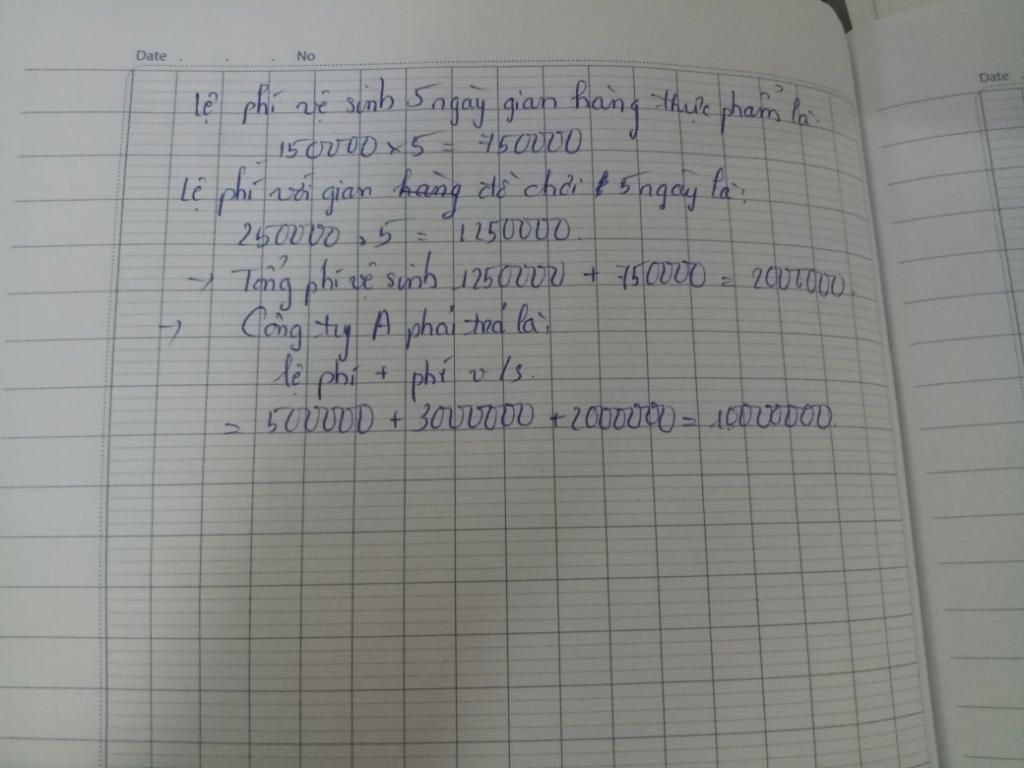 Date . . . No
Date
lệ phí vệ sinh 5 ngày gian hàng thực phẩm là:
150000 x 5 = 750000
lệ phí với gian hàng đồ chơi 5 ngày là:
250000 x 5 = 1250000.
→ Tổng phí vệ sinh 1250000 + 750000 = 2000000.
→ Công ty A phải trả là:
lệ phí + phí v/s.
= 5000000 + 3000000 + 2000000 = 10000000.